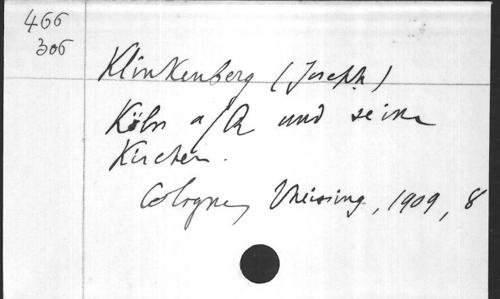 466
306
Klinkenberg (Joseph)
Köln a/R und seine
Kirchen.
Cologne, Theissing, 1909, 8